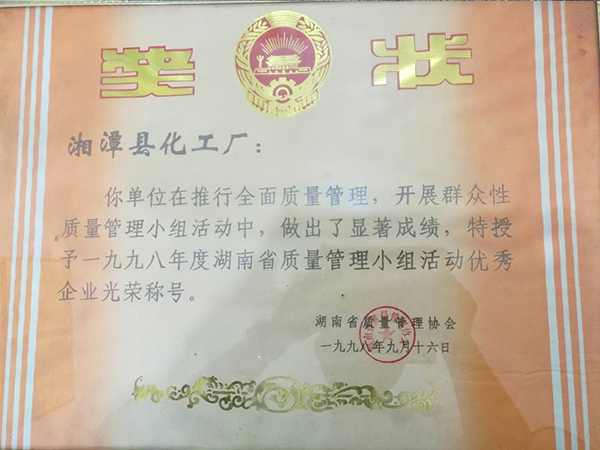 奖状
湘潭县化工厂：
你单位在推行全面质量管理，开展群众性
质量管理小组活动中，做出了显著成绩，特授
予一九九八年度湖南省质量管理小组活动优秀
企业光荣称号。
湖南省质量管理协会
一九九八年九月十六日